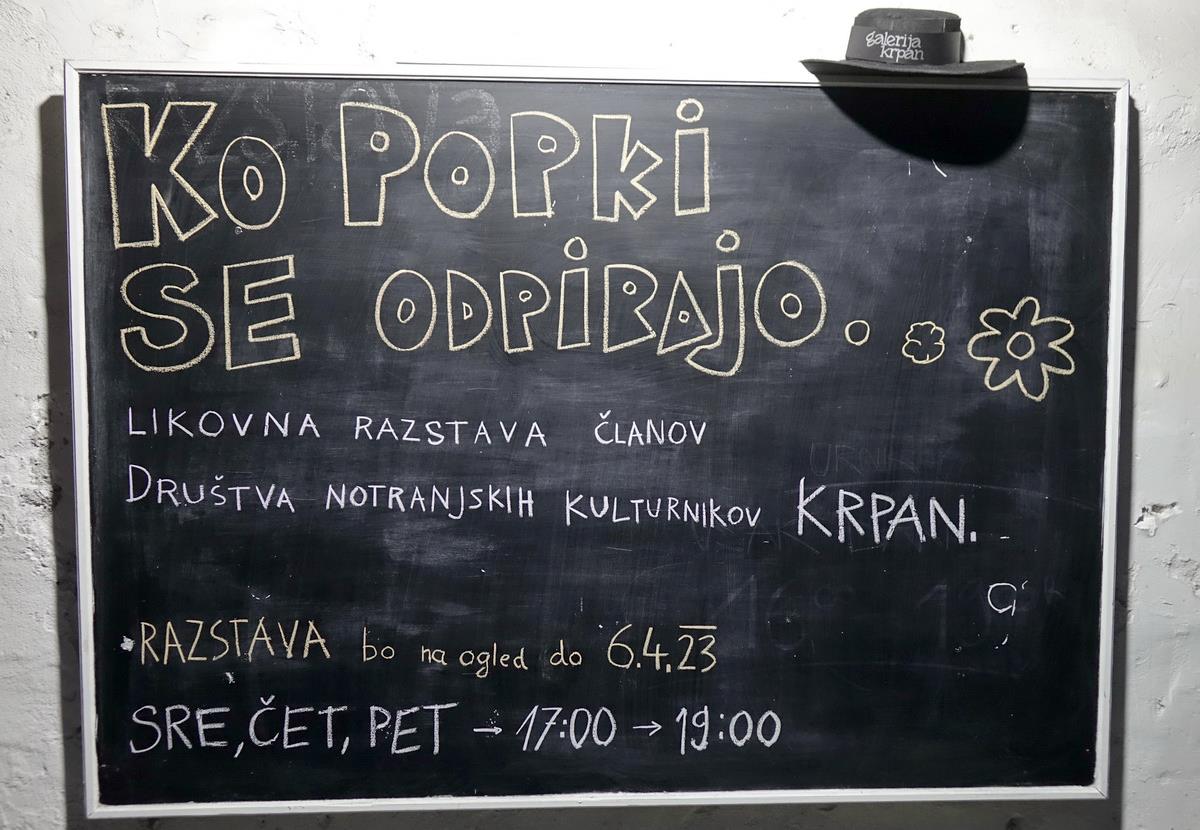 galerija
krpan
KO POPKi
SE ODPiRAjO.
LIKOVNA RAZSTAVA ČLANOV
DRUŠTVA NOTRANJSKIH KULTURNIKOV KRPAN.
RAZSTAVA bo na ogled do 6.4.23
SRE, ČET, PET → 17:00 → 19:00